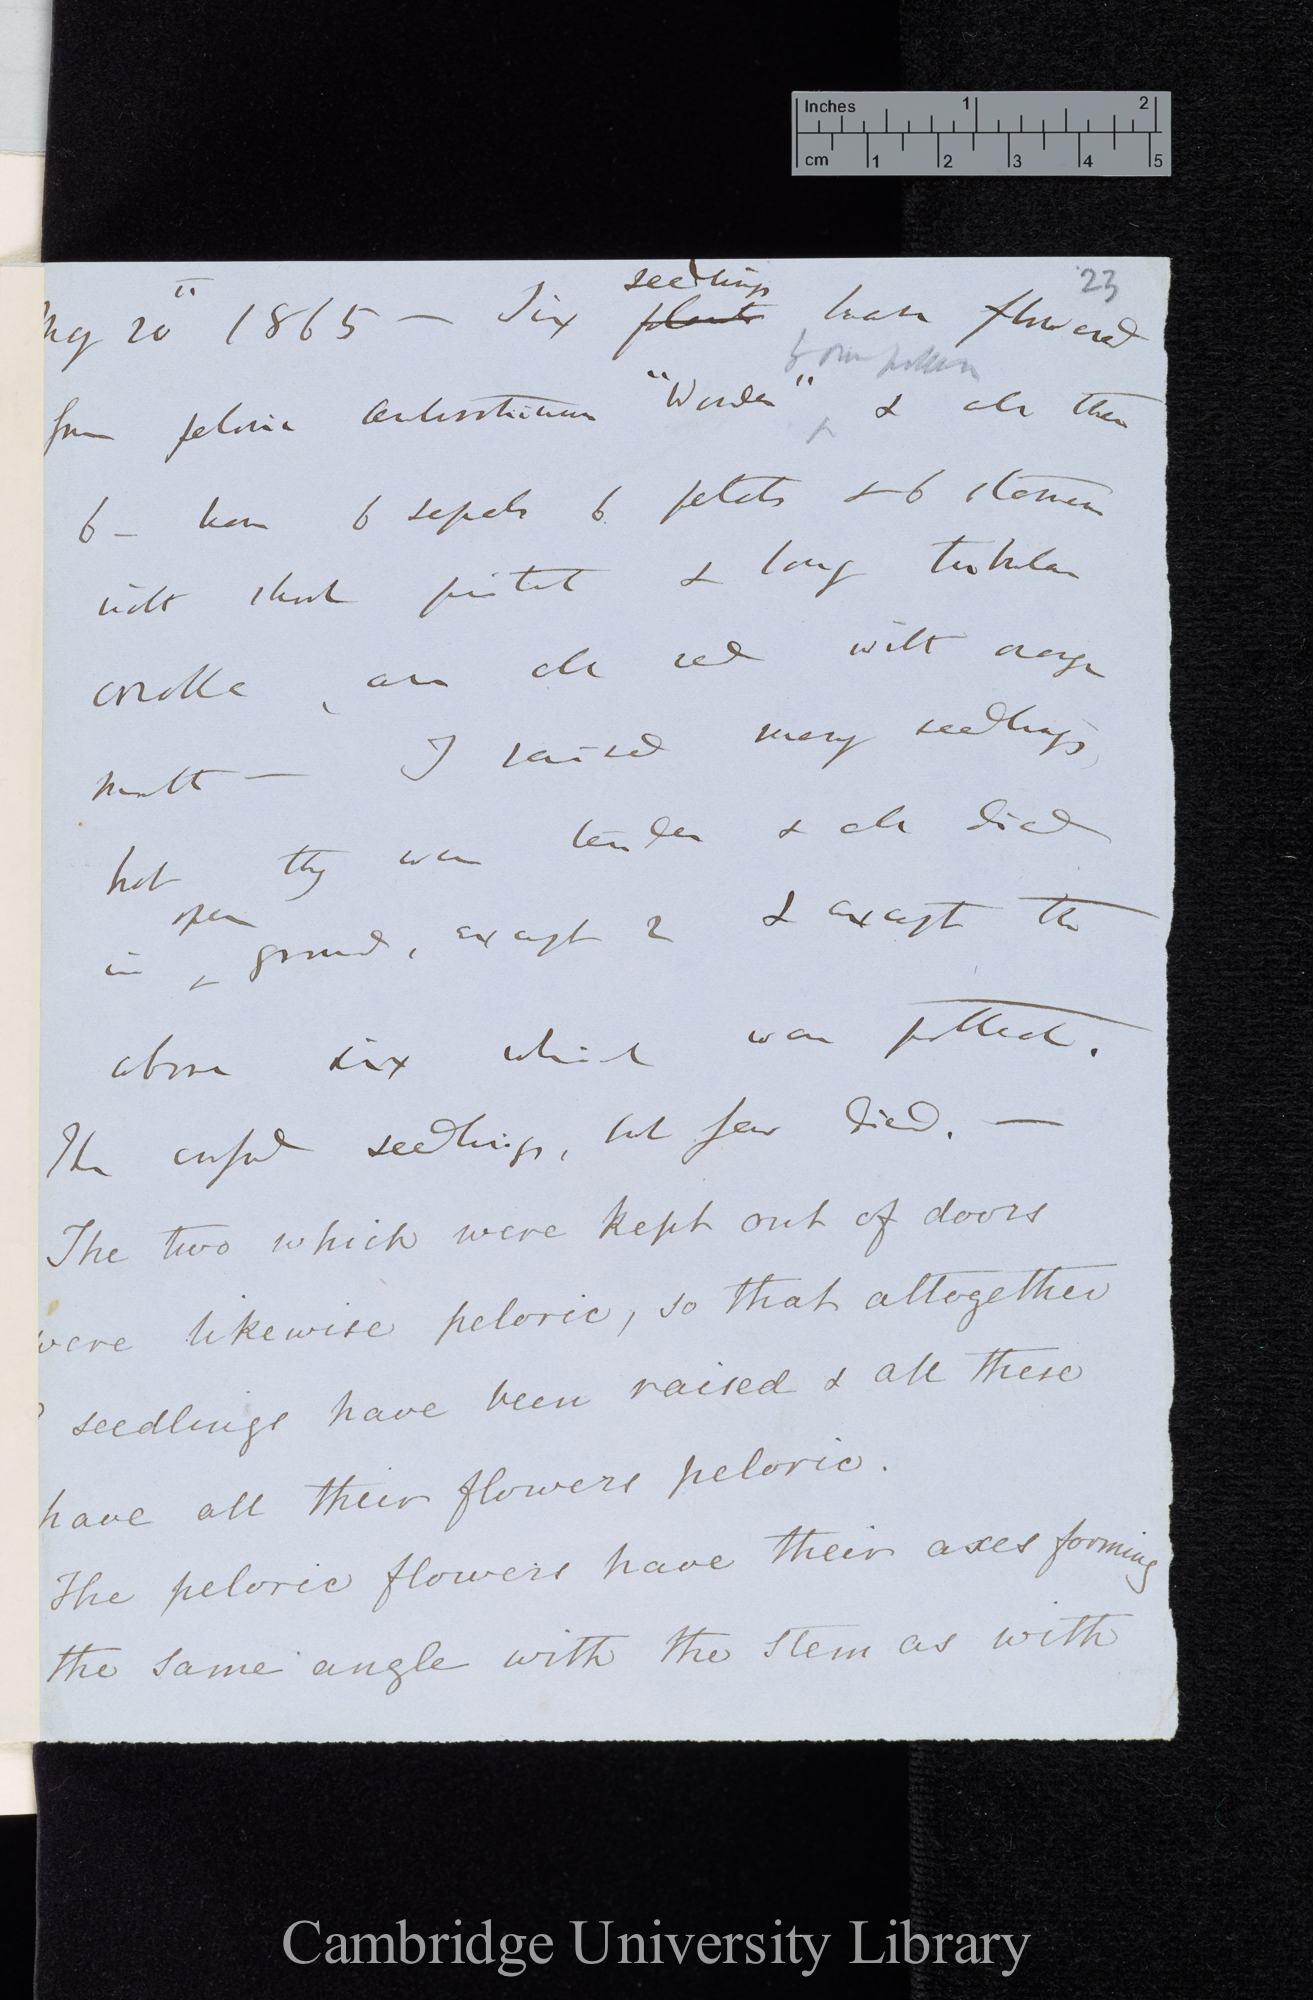 Inches 1 2
cm 1 2 3 4 5
23
seedlings
Aug 20th 1865 — Six plants have flowered
by own pollen
from peloric Antirrhinum "Wonder" & all these
6 — have 6 sepals 6 petals & 6 stamens
with short pistil & long tubular
corolla, are all red with orange
mouth — I raised many seedlings,
but they were tender & all died
open
in ground, except 2 & except the
above six which were potted.
The crossed seedlings, but few died. —
The two which were kept out of doors
were likewise peloric, so that altogether
seedlings have been raised & all these
have all their flowers peloric.
The peloric flowers have their axes forming
the same angle with the stem as with
Cambridge University Library